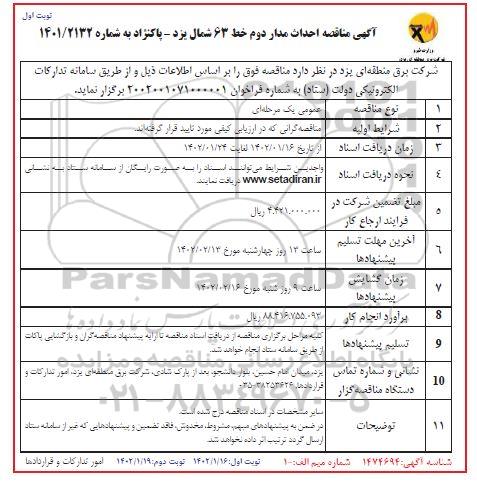 نوبت اول
وزارت نیرو
آگهی مناقصه احداث مدار دوم خط ۶۳ شمال یزد - پاکنژاد به شماره ۱۴۰۱/۲۱۳۲
شرکت برق منطقه‌ای یزد در نظر دارد مناقصه فوق را بر اساس اطلاعات ذیل و از طریق سامانه تدارکات
الکترونیکی دولت (ستاد) به شماره فراخوان ۲۰۰۲۰۰۱۰۷۱۰۰۰۰۰۱ برگزار نماید.
۱ نوع مناقصه عمومی یک مرحله‌ای
۲ شرایط اولیه مناقصه‌گرانی که در ارزیابی کیفی مورد تایید قرار گرفته‌اند.
۳ زمان دریافت اسناد از تاریخ ۱۴۰۲/۰۱/۱۶ لغایت ۱۴۰۲/۰۱/۲۴
۴ نحوه دریافت اسناد واجدین شرایط می‌توانند اسناد را به صورت رایگان از سامانه ستاد به نشانی
www.setadiran.ir دریافت نمایند.
۵ مبلغ تضمین شرکت در
فرایند ارجاع کار
۴.۴۲۱.۰۰۰.۰۰۰ ریال
۶ آخرین مهلت تسلیم
پیشنهادها
ساعت ۱۳ روز چهارشنبه مورخ ۱۴۰۲/۰۲/۱۳
۷ زمان گشایش
پیشنهادها
ساعت ۹ روز شنبه مورخ ۱۴۰۲/۰۲/۱۶
8 برآورد انجام کار ۸۸.۴۱۶.۷۵۵.۰۹۳ ریال
9 تسلیم پیشنهادها کلیه مراحل برگزاری مناقصه از دریافت اسناد مناقصه تا ارایه پیشنهاد مناقصه‌گران و بازگشایی پاکات
از طریق سامانه ستاد انجام خواهد شد.
10 نشانی و شماره تماس
دستگاه مناقصه‌گزار
یزد، میدان امام حسین، بلوار دانشجو، بعد از پارک شادی، شرکت برق منطقه‌ای یزد، امور تدارکات و
قراردادها، ۳۸۲۵۳۶۲۶-۰۳۵
۱۱ توضیحات سایر مشخصات در اسناد مناقصه درج شده است.
در ضمن به پیشنهادهای مبهم، مشروط، مخدوش، فاقد تضمین و پیشنهادهایی که غیر از سامانه ستاد
ارسال گردد ترتیب اثر داده نخواهد شد.
شناسه آگهی: ۱۴۷۴۶۹۴ شماره میم الف: ۱۰۰ نوبت اول: ۱۴۰۲/۱/۱۶ نوبت دوم: ۱۴۰۲/۱/۱۹ امور تدارکات و قراردادها
ParsNamadData
پایگاه اطلاع رسانی مناقصه و مزایده
۰۲۱-۸۸۳۴۹۶۷۰-۵